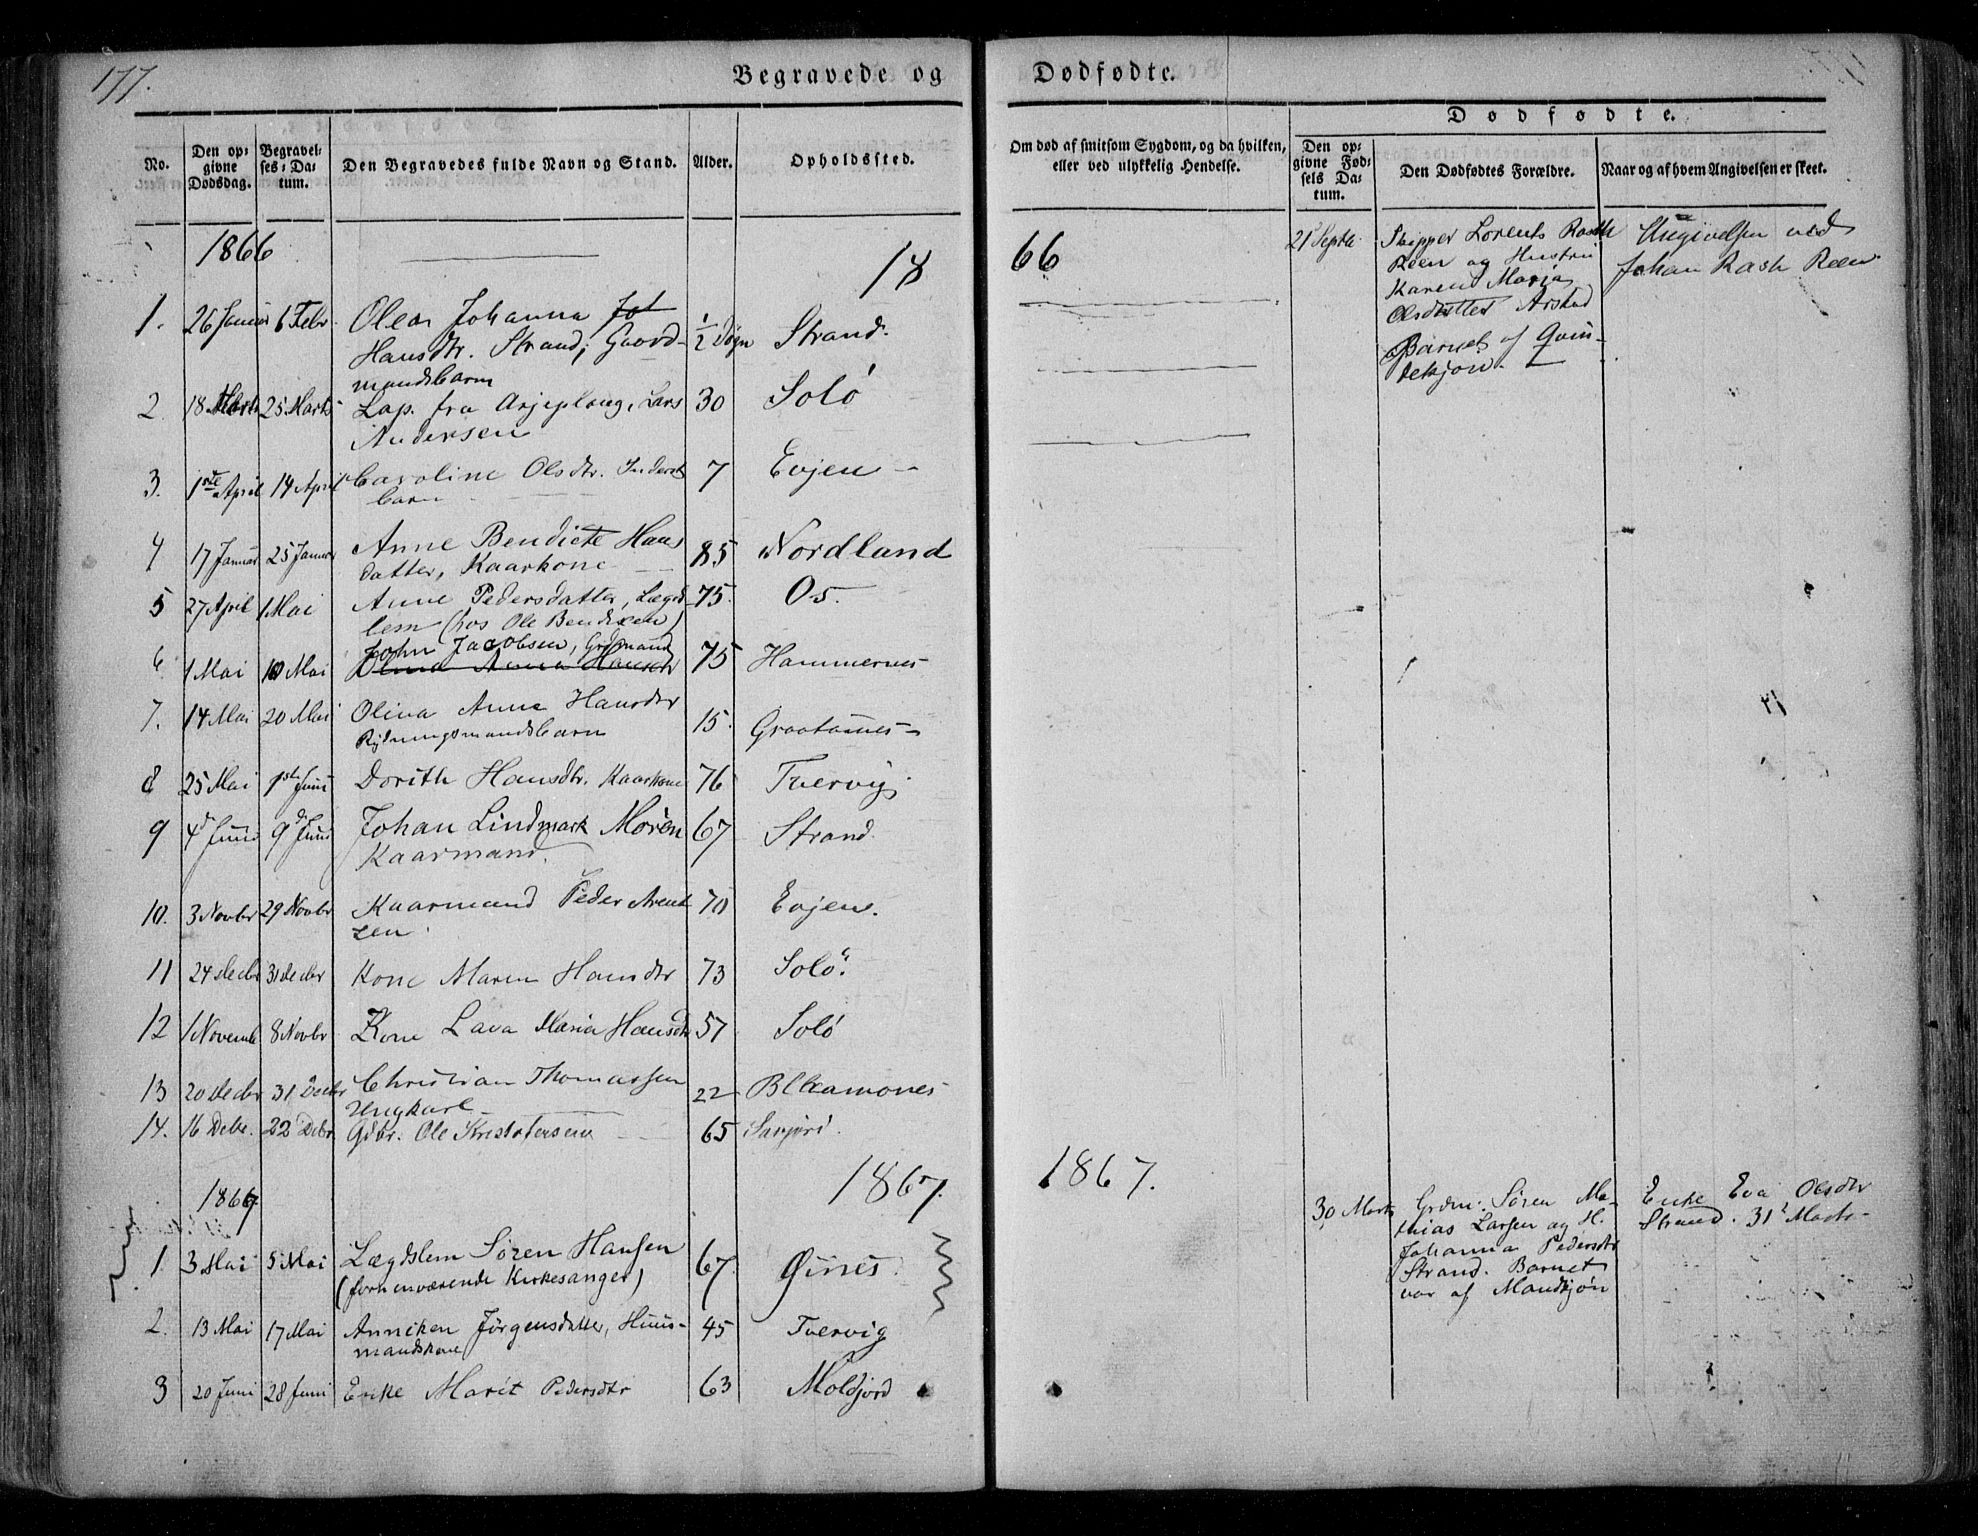 177.
Begravede og
No.
Den op=
givne
Dødsdag.
Begravel=
ses=Da=
tum.
Den Begravedes fulde Navn og Stand.
Alder.
Opholdssted.
1866
18
1. 26 Januar 6 Febr. Olea Johanna Jot ½ Døgn Strand.
Hansdtr. Strand, Gaard-
mandsbarn
2. 18 Marts 25 Marts Lap. fra Arjeplaug, Lars 30 Solö
Andersen
3. 1ste April 14 April Caroline Olsdtr. 7 Evjen
barn
4 17 Januar 25 Januar Anne Bendicte Hans 85 Nordland
datter, Kaarkone
5 27 April 1 Mai Anne Pedersdatter, Lægds 75. Os.
lem (hos Ole Bendixen)
John Jacobsen, Grdmand
6 1 Mai 10 Mai Olina Anna Hansdtr 75 Hammernes
7. 14 Mai 20 Mai Olina Anne Hansdtr 15.
Rydningsmandsbarn
8 25 Mai 1ste Juni Dorith Hansdtr. Kaarkone 76 Tvervig
9 4d Juni 9d Juni Johan Lindmark Morèn 67 Strand.
Kaarmand.
10. 3 Novbr 29 Novbr Kaarmand Peder Arent 70 Evjen.
zen.
11 24 Decbr 31 Decbr Kone Maren Hansdtr 73 Solö.
12 1 Novemb 8 Novbr Kone Lava Maria Hansdtr 57 Solö
13 20 Decbr 31 Decbr Christian Thomassen 22
Ungkarl
14. 16 Debr. 22 Debr Gdbr. Ole Kristofersen 65
1867
1867.
1. 3 Mai 5 Mai Lægdslem Søren Hansen 67. Øines.
(forhenværende Kirkesanger)
2. 13 Mai 17 Mai Anniken Jørgensdatter, Huus- 45 Tvervig
mandskone
3 20 Juni 28 Juni Enke Marit Pedersdtr 63 Moldjord
Dødfødte.
Om død af smitsom Sygdom, og da hvilken,
eller ved ulykkelig Hendelse.
Dødfødte.
Den op=
givne Fød=
sels Da=
tum.
Den Dødfødtes Forældre.
Naar og af hvem Angivelsen er skeet.
66
21 Septbr. Skipper Lorents Rash
Reen og Hustru
Karen Maria
Olsdatter Arstad
Barnet af Qvin-
dekjøn.
Angivelsen ved
Johan Rash Reen.
1867.
30 Marts Grdm: Søren Ma-
thias Larsen og H.
Johanna Pedersdtr
Strand. Barnet
var af Mandkjøn
Enke Eva Olsdtr
Strand. 31 Marts-